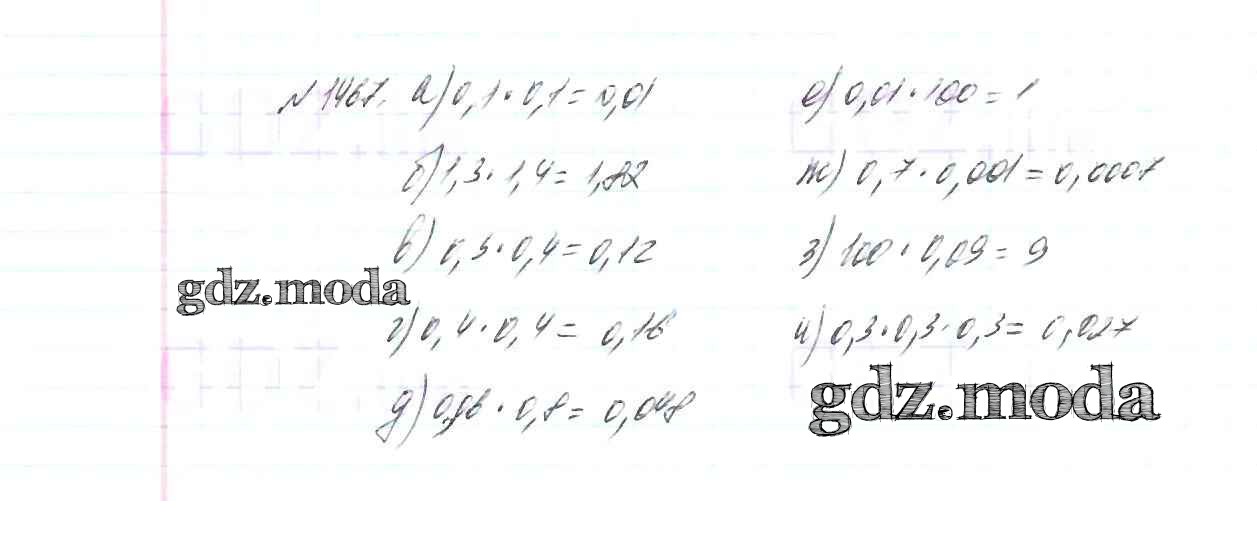 №1467. а) 0,1·0,1=0,01
б) 1,3·1,4=1,82
в) 0,3·0,4=0,12
gdz.moda
г) 0,4·0,4= 0,16
д) 0,06·0,8= 0,048
е) 0,01·100=1
ж) 0,7·0,001=0,0007
з) 100·0,09=9
и) 0,3·0,3·0,3= 0,027
gdz.moda